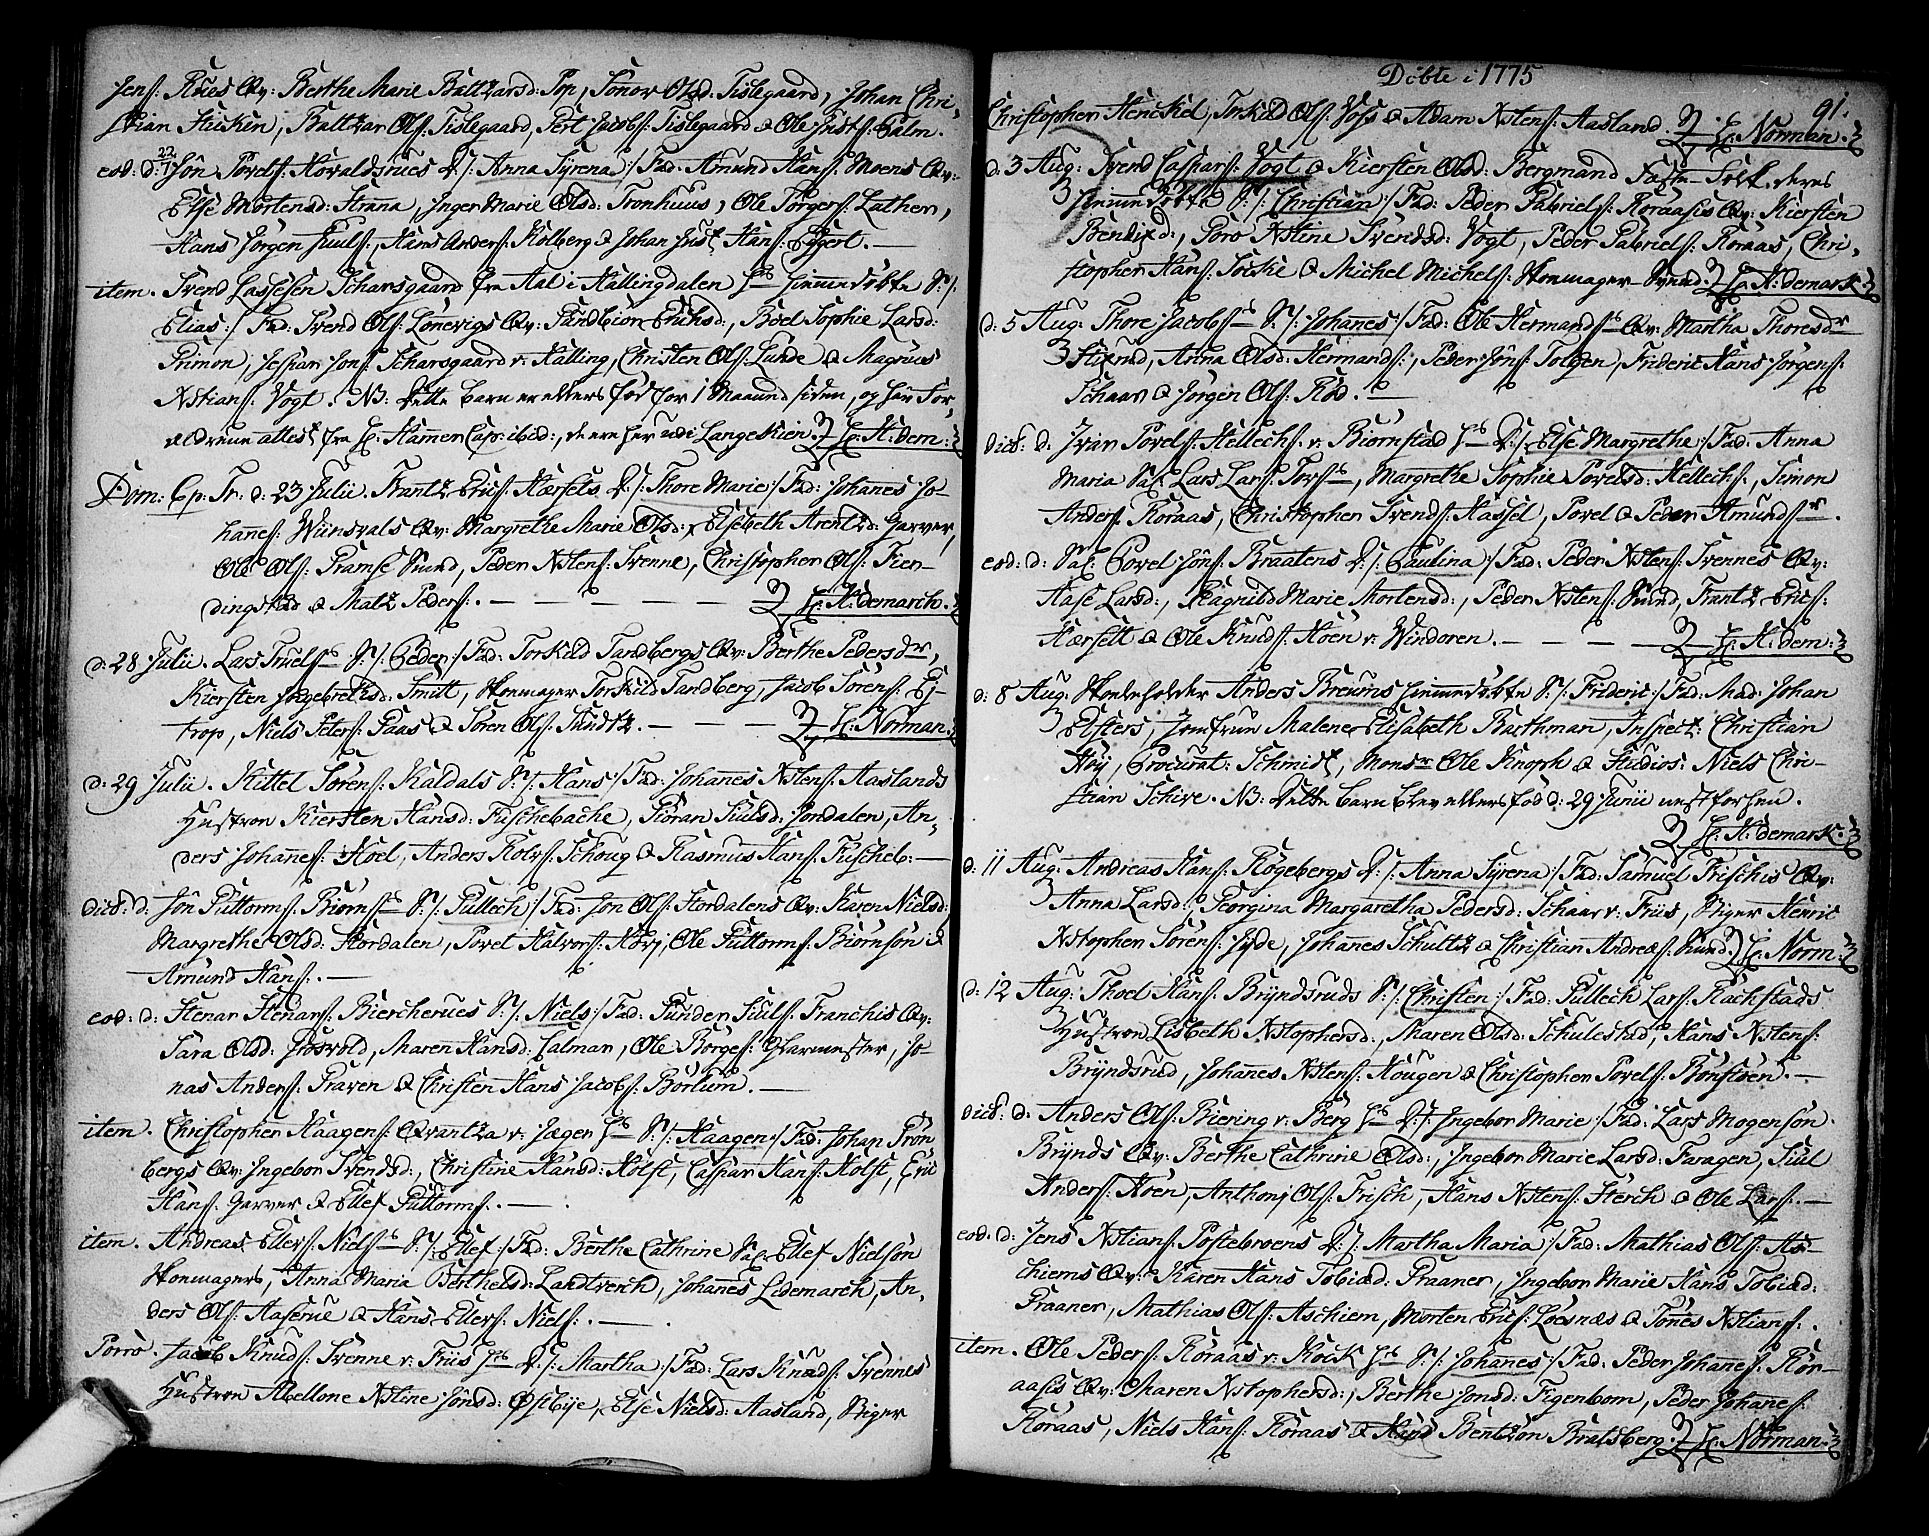 Jens: Rües Qv: Berthe Marie Baltzarsd: Pop, Gunor Olsd: Tislegaard, Johan Chri-
stian Fücken, Baltzar Ols: Tislegaard, Perl Jacobs: Tislegaard & Ole Justs: Calm.
eod: d: 22/7 Jön Povels: Hovaldsrues D:/: Anna Syrena:/ Fad: Amund Hans: Moens Qv:
Else Mortensd: Strøna, Inger Marie Olsd: Tronhuus, Ole Törgers: Lathen,
Hans Jørgen Juuls:, Hans Anders: Kolberg & Johan Just Hans: Eggert. —
item. Svend Lassesen Scharsgaard fra Aal i Hallingdalen hiemedöbte S:/:
Elias:/ Fad: Svend Ols: Lönevigs Qv: Gundbior Erichsd:, Boel Sophie Larsd:
Primon, Jespar Jons: Scharsgaard v: Halling, Christen Ols: Lunde & Magnus
Xstians: Vogt. NB: Dette barn er ellers fød for 1 Maaned siden, og har For-
ældrene attest fra H: Hamer Cap: ibid:, de ere her udi Langeskien. H: H:dem:
Dom: 6 p: Tr: d: 23 Julii. Frantz Erics: Hærsets D:/: Thore Marie:/ Fad: Johanes Jo-
hanes: Wünsvals Qv: Margrethe Marie Olsd:, Elsebeth Arentzd: Garver,
Ole Ols: Gramse Smed, Peder Xstens: Svenne, Christopher Ols: Fien-
dingstad & Matz Peders:. — — — — — H: H:demarch.
d: 28 Julii. Lars Truels: S:/: Peder:/ Fad: Torkild Tandbergs Qv: Berthe Pedersdr,
Kiersten Ingebrethsd: Smitt, Skomager Torkild Tandberg, Jacob Sörens: Ej-
trop, Niels Peters: Gaas & Sören Ols: Sündtz. — — — H: Norman.
d: 29 Julii. Kittel Sörens: Kaldals S:/: Hans:/ Fad: Johanes Xstens: Aaslands
Hustroe Kiersten Hansd: Fischebache, Göran Juulsd: Jondalen, An-
ders Johanes: Hoel, Anders Rolvs: Schoug & Rasmus Hans: Fischeb: —
dict: d: Jön Guttorms: Biørns: S:/: Gullech:/ Fad: Jon Ols: Stordalens Qv: Karen Nielsd:
Margrethe Olsd: Stordalen, Povel Halvors: Hovj, Ole Guttorms: Biørnsön &
Amund Hans:. —
eod: d: Stenar Stenars: Biercherues S:/: Niels:/ Fad: Gunder Juuls: Franchis Qv:
Sara Olsd: Grosvold, Maren Hansd: Calman, Ole Børges: Glarmester, Jo-
nas Anders: Graven & Christen Hans Jacobs: Børlum. —
item. Christopher Haagens: Qvantza v: Jæger S:/: Haagen:/ Fad: Johan Grön-
bergs Qv: Ingebor Svendsd:, Christine Hansd: Holst, Caspar Hans: Holst, Eric
Hans: Garver & Ellef Guttorms:. —
item. Andreas Ellevs: Niels: S:/: Ellef:/ Fad: Berthe Cathrine Sal: Ellef Nielsön
Skomagers, Anna Maria Berthelsd: Landtvenh, Johanes Lidemarch, An-
ders Ols: Aaserue & Hans Ellevs: Niels:. —
Porro. Jacob Knuds: Svenne v: Friis D:/: Martha:/ Fad: Lars Knuds: Svennes
Hustroe Abellone Xstine Jönsd: Østbye, Else Nielsd: Aasland, Stiger
Döbte i 1775
91.
Christopher Henckel, Torkild Ols: Voss & Adam Xstens: Aasland. H: Norman.
d: 3 Aug: Svend Caspars: Vogt & Kiersten Olsd: Bergmand Fæste-Folk, deres
hiemedöbte S:/: Christian:/ Fad: Peder Gabriels: Roraasis Qv: Kiersten
Bendixd:, Goro Xstine Svendsd: Vogt, Peder Gabriels: Roraas, Chri-
stopher Hans: Focke & Michel Michels: Skomager-Svend. H: H:demark.
d: 5 Aug: Thore Jacobs: S:/: Johanes:/ Fad: Ole Hermands: Qv: Martha Thoresdr
Stixrud, Anna Olsd: Hermands:, Peder Jöns: Tolgen, Frideric Hans Jörgens:
Schaar & Jörgen Ols: Röd. —
dict: d: Ivar Povels: Hellechs: v: Biørnstad D:/: Else Margrethe:/ Fad: Anna
Maria Sal: Lars Lars: Tors:, Margrethe Sophie Povelsd: Hellechs:, Simon
Anders: Roraas, Christopher Svends: Hassel, Povel & Peder Amunds:.
eod: d: Sal: Povel Jöns: Braatens D:/: Paulina:/ Fad: Peder Xstens: Svennes Qv:
Aase Larsd:, Ragnild Marie Mortensd:, Peder Xstens: Smed, Frantz Erics:
Hærsett & Ole Knuds: Hoen v: Windoren. — — — H: H:dem:
d: 8 Aug: Skoleholder Anders Breums hiemedöbte S:/: Frideric:/ Fad: Mad: Johan
Elsters, Jomfrue Malene Elisabeth Barthman, Inspect: Christian
Höy, Procurat: Schmidt, Monsr Ole Knoph & Studios: Niels Chri-
stian Schive. NB: Dette barn blev ellers fød d: 29 Junii nestforhen.
H: H:demark.
d: 11 Aug: Andreas Hans: Røgebergs D:/: Anna Syrena:/ Fad: Samuel Frischis Qv:
Anna Larsd:, Georgina Margaretha Pedersd: Schaar v: Friis, Stiger Henric
Xstopher Sörens: Jyde, Johanes Schultz & Christian Andreæs: Smed. H: Norm:
d: 12 Aug: Thoel Hans: Bryndsruds S:/: Christen:/ Fad: Gullech Lars: Rachstads
Hustroe Lisbeth Xstophersd:, Maren Olsd: Schulestad, Hans Xstens:
Bryndsrud, Johanes Xstens: Hougen & Christopher Povels: Bønstøen. —
dict: d: Anders Ols: Biering v: Berg D:/: Ingebor Marie:/ Fad: Lars Mogensön
Brynds Qv: Berthe Cathrine Olsd:, Ingebor Marie Larsd: Faragen, Juul
Anders: Hoen, Anthonj Ols: Frisch, Hans Xstens: Sterch & Ole Lars:. —
eod: d: Jens Xstians: Gostebroens D:/: Martha Maria:/ Fad: Mathias Ols: As-
chiems Qv: Karen Hans Tobiæd: Graaner, Ingebor Marie Hans Tobiæd:
Graaner, Mathias Ols: Aschiem, Morten Erics: Løesnæs & Tönes Xstians:.
item. Ole Peders: Röraas v: Kock S:/: Johanes:/ Fad: Peder Johanes: Rör-
aasis Qv: Maren Xstophersd:, Berthe Jonsd: Figenbom, Peder Johanes:
Roraas, Niels Hans: Roraas & Hans Bentzon Bratsberg. H: Norman.